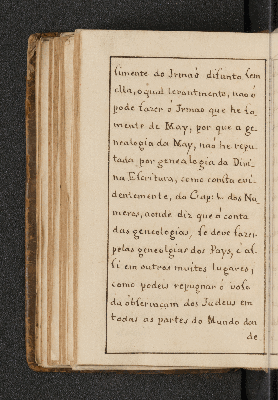 limente do Irmaõ difunto sem
ella, o qual levantmente, naõ o
pode fazer o Irmao que he so
mente de May, por que a ge
nealogia da May, naõ he repu
tada por genealogia da Divi
na Escritura, como consta evi
dentemente, do Cap: 1. dos Nu
meros, aonde diz que a conta
das geneologias, se deve fazer
pelas geneolgias dos Pays, e as
si em outros muitos lugares;
como podeis repugnar o
da observaçam dos Judeus em
todas as partes do Mundo don
de